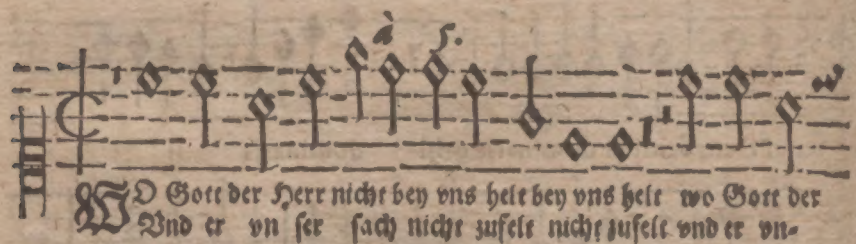 à 5.
WO Gott der Herr nicht bey vns helt bey vns helt wo Gott der
Vnd er vn ser sach nicht zufelt nicht zufelt vnd er vn-